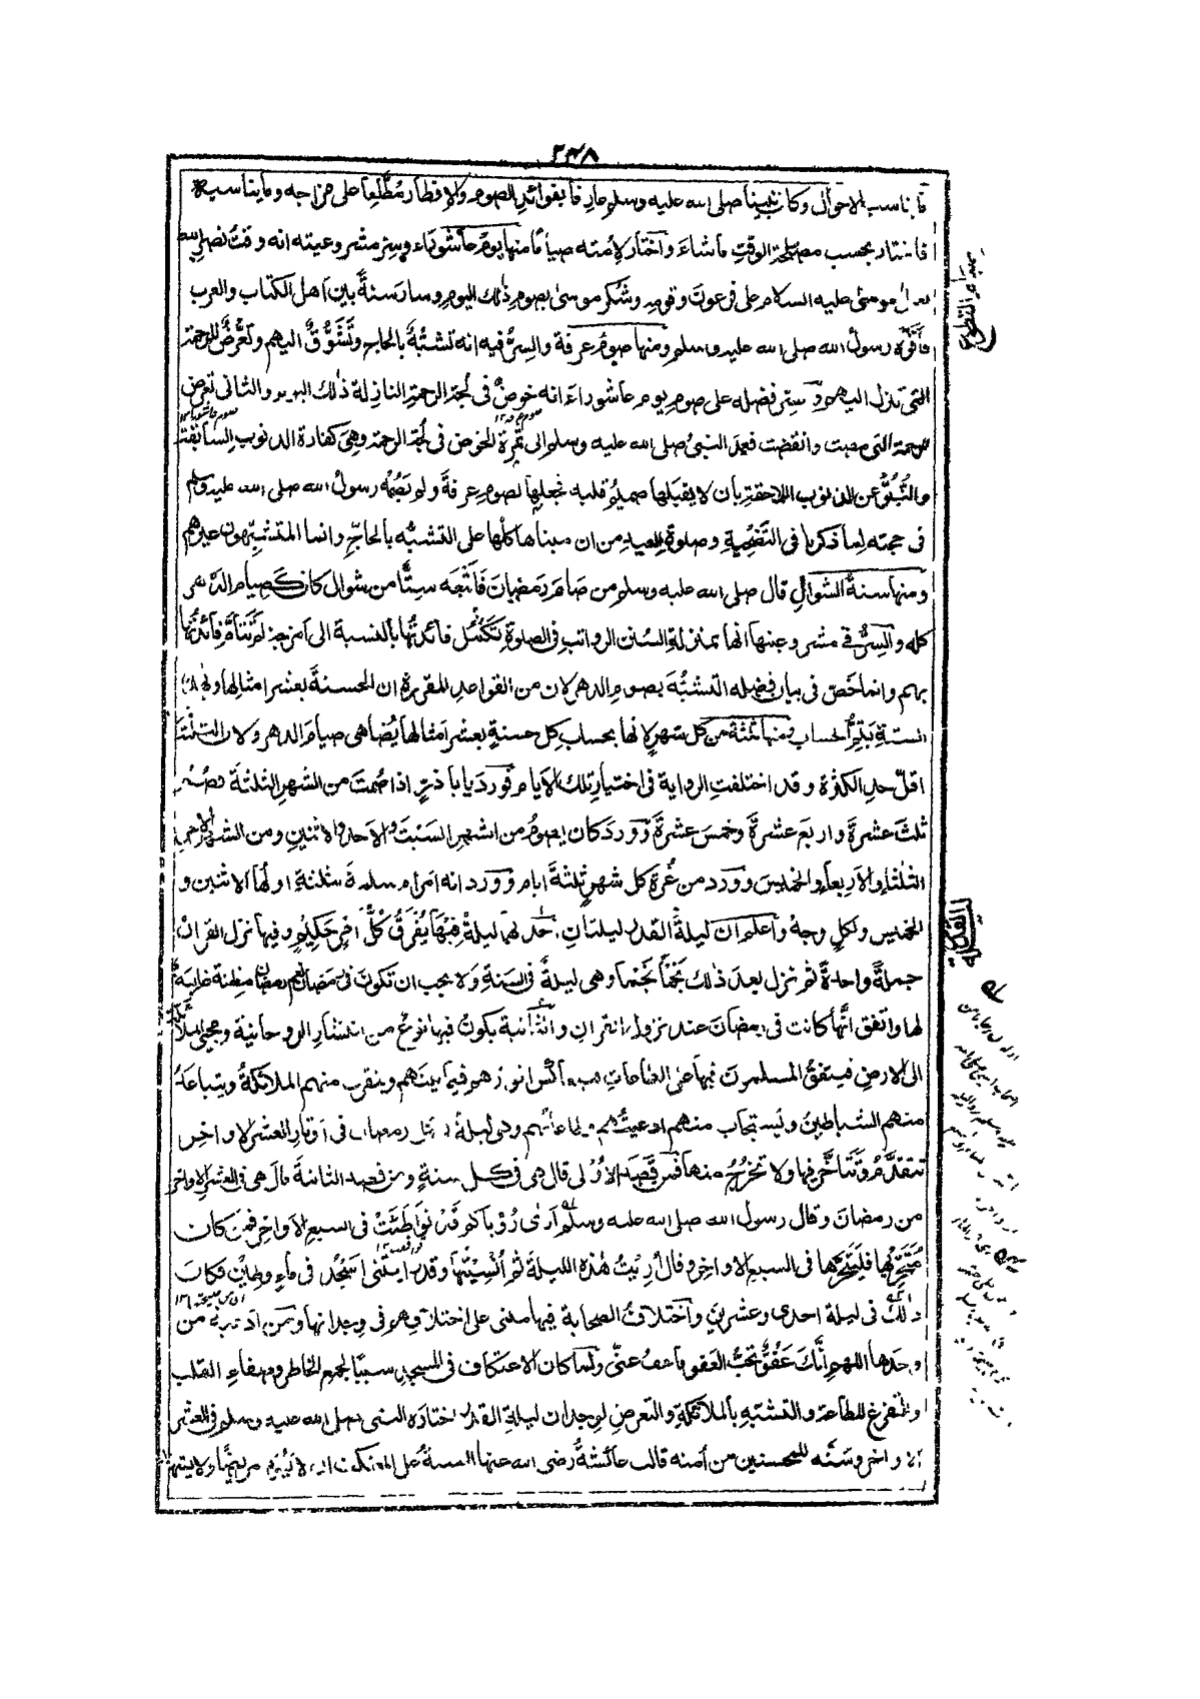 ٢٣٨
ما يناسب الاحوال وكان نبينا صلى الله عليه وسلم عارفا بفوائد الصوم والافطار مطلعا على مزاجه وما يناسبه
فاختار بحسب مصلحة الوقت ماشاء واختار لامته صياما منها يوم عاشوراء وسر مشروعيته انه وقت نصر الله
موسى عليه السلام على فرعون وقومه وشكر موسى بصوم ذلك اليوم وصار سنة بين اهل الكتاب والعرب
فاقره رسول الله صلى الله عليه وسلم ومنها صوم عرفة والسر فيه انه تشبه بالحاج وتشوق اليهم وتعرض للرحمة
التي تنزل اليهم وسر فضله على صوم يوم عاشوراء انه خوض في لجة الرحمة النازلة ذلك اليوم والثاني تعرض
للرحمة التي مضت وانقضت فعمد النبي صلى الله عليه وسلم الى ثمرة الخوض في لجة الرحمة وهي كفارة الذنوب السابقة
والنبو عن الذنوب اللاحقة بان لا يقبلها صميم قلبه فجعلها لصوم عرفة ولم يصمه رسول الله صلى الله عليه وسلم
في حجته لما ذكرنا في التضحية وصلوة العيد من ان مبناها كلها على التشبه بالحاج وانما المتشبهون غيرهم
ومنها ستة الشوال قال صلى الله عليه وسلم من صام رمضان فاتبعه ستا من شوال كان كصيام الدهر
كله والسر في مشروعيتها انها بمنزلة السنن الرواتب في الصلوة تكمل فائدتها بالنسبة الى امزجة لم تتام فائدتها
بهم وانما خص في بيان فضله التشبه بصوم الدهر لان من القواعد المقررة ان الحسنة بعشر امثالها وبهذه
الستة يتم الحساب ومنها ثلثة من كل شهر لانها بحساب كل حسنة بعشر امثالها يضاهي صيام الدهر ولان الثلثة
اقل حد الكثرة وقد اختلفت الرواية في اختيار تلك الايام فورد يا با ذر اذا صمت من الشهر الثلثة فصم
ثلث عشرة واربع عشرة وخمس عشرة وورد كان يصوم من الشهر السبت والاحد والاثنين ومن الشهر الاخر
الثلثاء والاربعاء والخميس وورد من غرة كل شهر ثلثة ايام وورد انه امر ام سلمة بثلثة اولها الاثنين و
الخميس ولكل وجه واعلم ان ليلة القدر ليلتان احدهما ليلة فيها يفرق كل امر حكيم وفيها نزل القران
جملة واحدة ثم نزل بعد ذلك نجما نجما وهي ليلة في السنة ولا يجب ان تكون في رمضان نعم رمضان مظنة غالبية
لها واتفق انها كانت في رمضان عند نزول القران والثانية يكون فيها نوع من انتشار الروحانية ومجيئ الملائكة
الى الارض فيتفق المسلمون فيها على الطاعات فيتعاكس انوارهم فيما بينهم ويتقرب منهم الملائكة ويتباعد
منهم الشياطين ويستجاب منهم ادعيتهم وطاعاتهم وهي ليلة في كل رمضان في اوتار العشر الاواخر
تتقدم وتتاخر فيها ولا تخرج منها فمن قصد الاولى قال هي في كل سنة ومن قصد الثانية قال هي في العشر الاواخر
من رمضان وقال رسول الله صلى الله عليه وسلم ارى رؤياكم قد تواطئت في السبع الاواخر فمن كان
متحريها فليتحرها في السبع الاواخر وقال اريت هذه الليلة ثم انسيتها وقد رايتني اسجد في ماء وطين فكان
ذلك في ليلة احدى وعشرين واختلاف الصحابة فيها مبني على اختلافهم في وجدانها ومن ادعية من
وجدها اللهم انك عفو تحب العفو فاعف عني ولما كان الاعتكاف في المسجد سببا لجمع الخاطر وصفاء القلب
والتفرغ للطاعة والتشبه بالملائكة والتعرض لوجدان ليلة القدر اختاره النبي صلى الله عليه وسلم في العشر
الاواخر وسنه للمحسنين من امته قالت عائشة رضي الله عنها السنة على المعتكف ان لا يعود مريضا ولا يشهد